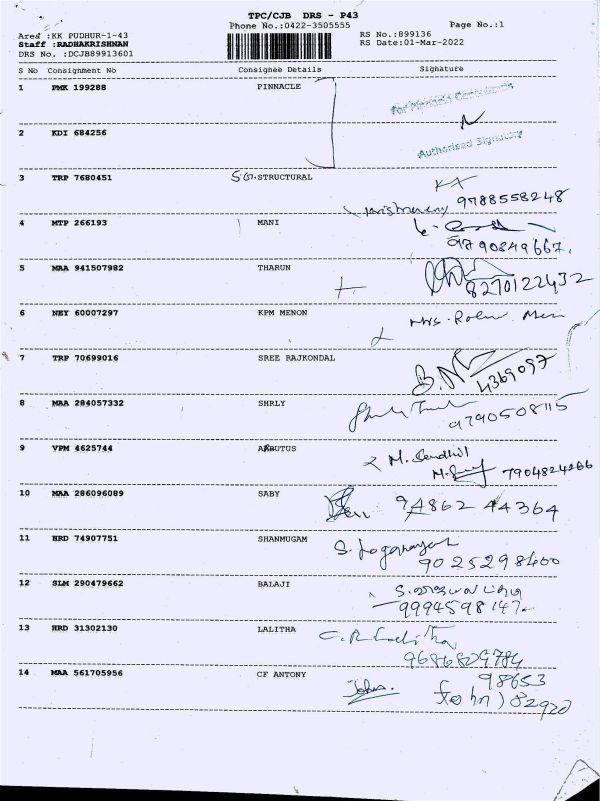 TPC/CJB DRS - P43
Phone No.:0422-3505555 Page No.:1
Area :KK PUDHUR-1-43 RS No.:899136
Staff :RADHAKRISHNAN RS Date:01-Mar-2022
DRS No. :DCJB89913601
S No Consignment No Consignee Details Signature
1 PMK 199288 PINNACLE
2 KDI 684256
Authorised Signatory
3 TRP 7680451 S.G.STRUCTURAL
9788558248
4 MTP 266193 MANI
9790849667.
5 MAA 941507982 THARUN
8270122432
6 NEY 60007297 KPM MENON
Mrs.
7 TRP 70699016 SREE RAJKONDAL
4369097
8 MAA 284057332 SHRLY
9790508115
9 VPM 4625744 ARBUTUS
M. Sendhil
7904824266
10 MAA 286096089 SABY
94862 44364
11 HRD 74907751 SHANMUGAM
9025298400
12 SLM 290479662 BALAJI
13 HRD 31302130 LALITHA
14 MAA 561705956 CF ANTONY
98653
(John) 82920